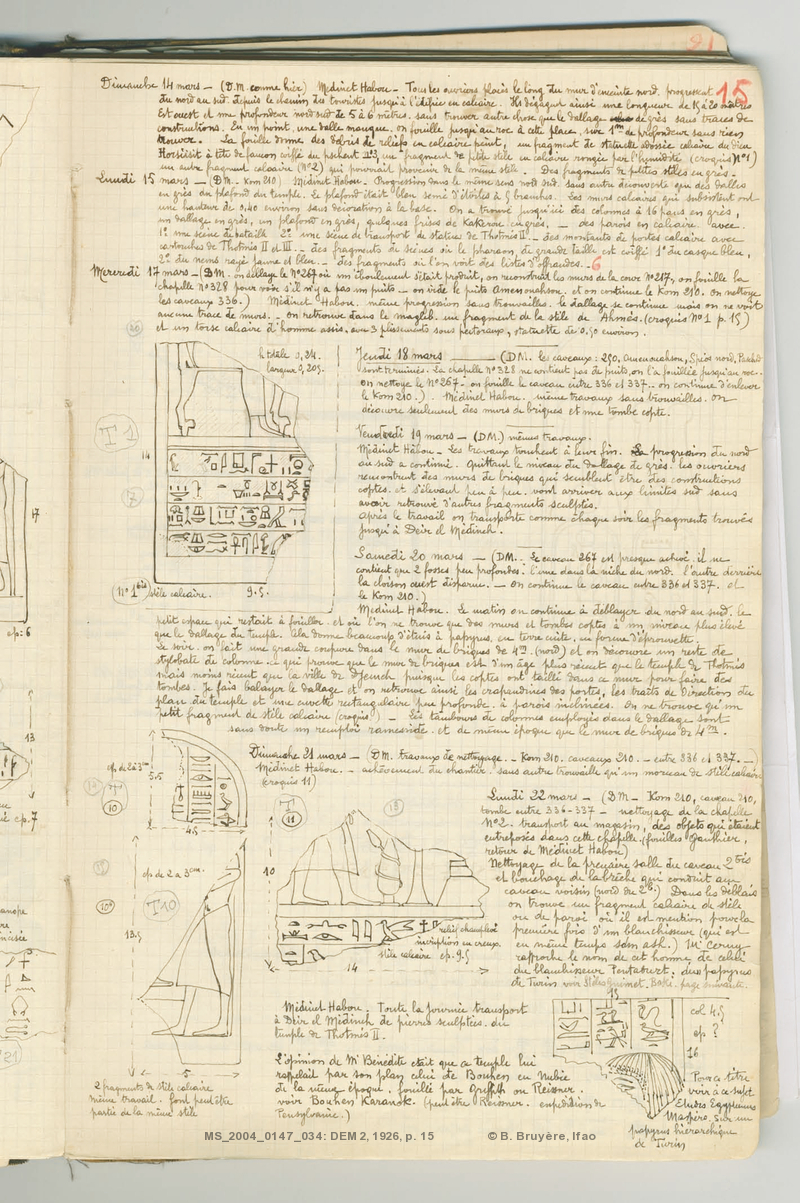 15
Dimanche 14 mars - (D.M. comme hier) Medinet Habou - Tous les ouvriers placés le long du mur d'enceinte nord, progressent
du nord au sud depuis le chemin des touristes jusqu'à l'édifice en calcaire. Ils dégagent ainsi une longueur de 15 à 20 mètres
Est ouest et une profondeur nord sud de 5 à 6 mètres. sans trouver autre chose que le dallage de grès sans traces de
constructions. En un point, une dalle manque, on fouille jusqu'au roc à cette place, sur 1m de profondeur sans rien
trouver. La fouille donne des débris de reliefs en calcaire peint, un fragment de statuette adossée calcaire du dieu
Horsiésit à tête de faucon coiffé du pschent, un fragment de petite stèle en calcaire rongée par l'humidité (croquis N°1)
un autre fragment calcaire (N°2) qui pourrait provenir de la même stèle. Des fragments de petites stèles en grès.
Lundi 15 mars - (DM. Kom 210) Médinet Habou. Progression dans le même sens nord sud. sans autre découverte que des dalles
en grès du plafond du temple. Le plafond était bleu semé d'étoiles à 5 branches. Les murs calcaires qui subsistent ont
une hauteur de 0,40 environ sans décoration à la base. On a trouvé jusqu'ici des colonnes à 16 pans en grès,
un dallage en grès, un plafond en grès, quelques frises de Kakerou en grès, - des parois en calcaire avec
1° une scène de bataille 2° une scène de transport de statues de Thotmès II - des montants de portes calcaire avec
cartouches de Thotmès II et III. - des fragments de scènes où le pharaon de grande taille est coiffé 1° du casque bleu,
2° du nems rayé jaune et bleu. - des fragments où l'on voit des listes d'offrandes. - 6
Mercredi 17 mars - (DM. on déblaye le N°267 où un éboulement s'était produit, on reconstruit les murs de la cour N°217, on fouille la
chapelle N°328 pour voir s'il n'y a pas un puits - on vide le puits Amenouahsou. et on continue le Kom 210. On nettoye
les caveaux 336.) Médinet Habou. même progression sans trouvailles. le dallage se continue mais on ne voit
aucune trace de murs. - On retrouve dans le magasin un fragment de la stèle de Ahmès. (croquis N°1 p. 15)
et un torse calcaire d'homme assis, avec 3 plissements sous pectoraux, statuette de 0,50 environ.
h. totale 0,24.
largeur 0,205.
T1
14
N°1 bis stèle calcaire.
9.5.
Jeudi 18 mars - (DM. les caveaux: 250, Amenouahsou, Spéos nord, Pashed
sont terminés. La chapelle N°328 ne contient pas de puits, on l'a fouillée jusqu'au roc.
on nettoye le N°267 - on fouille le caveau entre 336 et 337. - on continue d'enlever
le Kom 210.) Médinet Habou. même travaux sans trouvailles. on
découvre seulement des murs de briques et une tombe copte.
Vendredi 19 mars - (DM.) mêmes travaux.
Médinet Habou - Les travaux touchent à leur fin. La progression du nord
au sud a continué. Quittant le niveau du dallage de grès, les ouvriers
rencontrent des murs de briques qui semblent être des constructions
coptes. et s'élevant peu à peu vont arriver aux limites sud sans
avoir retrouvé d'autres fragments sculptés.
Après le travail on transporte comme chaque soir les fragments trouvés
jusqu'à Deir el Médineh.
Samedi 20 mars - (DM. Le caveau 267 est presque achevé. il ne
contient que 2 fosses peu profondes: l'une dans la niche du nord. l'autre derrière
la cloison ouest disparue. - On continue le caveau entre 336 et 337. et
le Kom 210.)
Médinet Habou. Le matin on continue à déblayer du nord au sud. le
petit espace qui restait à fouiller et où l'on ne trouve que des murs et tombes coptes à un niveau plus élevé
que le dallage du temple. Cela donne beaucoup d'étuis à papyrus, en terre cuite, en forme d'éprouvette.
Le soir on fait une grande coupure dans le mur de briques de 4m (nord) et on découvre un reste de
stylobate de colonne.. ce qui prouve que le mur de briques est d'un âge plus récent que le temple de Thotmès
mais moins récent que la ville de Djemeh puisque les coptes ont taillé dans ce mur pour faire des
tombes. Je fais balayer le dallage et on retrouve ainsi les crapaudines des portes, les traits de direction du
plan du temple et une cuvette rectangulaire peu profonde. à parois inclinées. On ne trouve qu'un
petit fragment de stèle calcaire (croquis) - Les tambours de colonnes employés dans le dallage sont
sans doute un remploi ramesside. et de même époque que le mur de briques de 4m.
ep. de 2 à 3cm
5.5
10
4.5
Dimanche 21 mars - (DM. travaux de nettoyage. - Kom 210. caveaux 210. - entre 336 et 337. -)
Médinet Habou. - achèvement du chantier. sans autre trouvaille qu'un morceau de stèle calcaire
(croquis 11)
ep. de 2 à 3cm.
T10
13.5
5
2 fragments de stèle calcaire
même travail. font peut être
partie de la même stèle
11
10
relief champlevé
inscription en creux.
stèle calcaire ep. 9.5
14
Lundi 22 mars - (DM - Kom 210, caveau 210,
tombe entre 336-337 - nettoyage de la chapelle
N°2. transport au magasin, des objets qui étaient
entreposés dans cette chapelle. (fouilles Gauthier,
retour de Médinet Habou)
Nettoyage de la première salle du caveau 2 bis
et bouchage de la brèche qui conduit au
caveau voisin (nord du 2b.) Dans les déblais
on trouve un fragment calcaire de stèle
ou de paroi où il est mention pour la
première fois d'un blanchisseur (qui est
en même temps sdm ash.) Mr Cerny
rapproche le nom de cet homme de celui
du blanchisseur Pentaourt. du papyrus
de Turin voir Stèles Guimet. page suivante.
Médinet Habou. Toute la journée transport
à Deir el Médineh de pierres sculptées du
temple de Thotmès II.
L'opinion de Mr Bénédite était que ce temple lui
rappelait par son plan celui de Bouhen en Nubie
de la même époque. fouillé par Griffith ou Reisner.
voir Bouhen Karanok. (peut être Reisner. expédition de
Pensylvanie.)
col 4.5
ep ?
16
Pour ce titre
voir à ce sujet
Etudes Egyptiennes
Maspéro. sur un
papyrus hiératique
de Turin
17
13
ep: 6
ep. 7
MS_2004_0147_034: DEM 2, 1926, p. 15
© B. Bruyère, Ifao